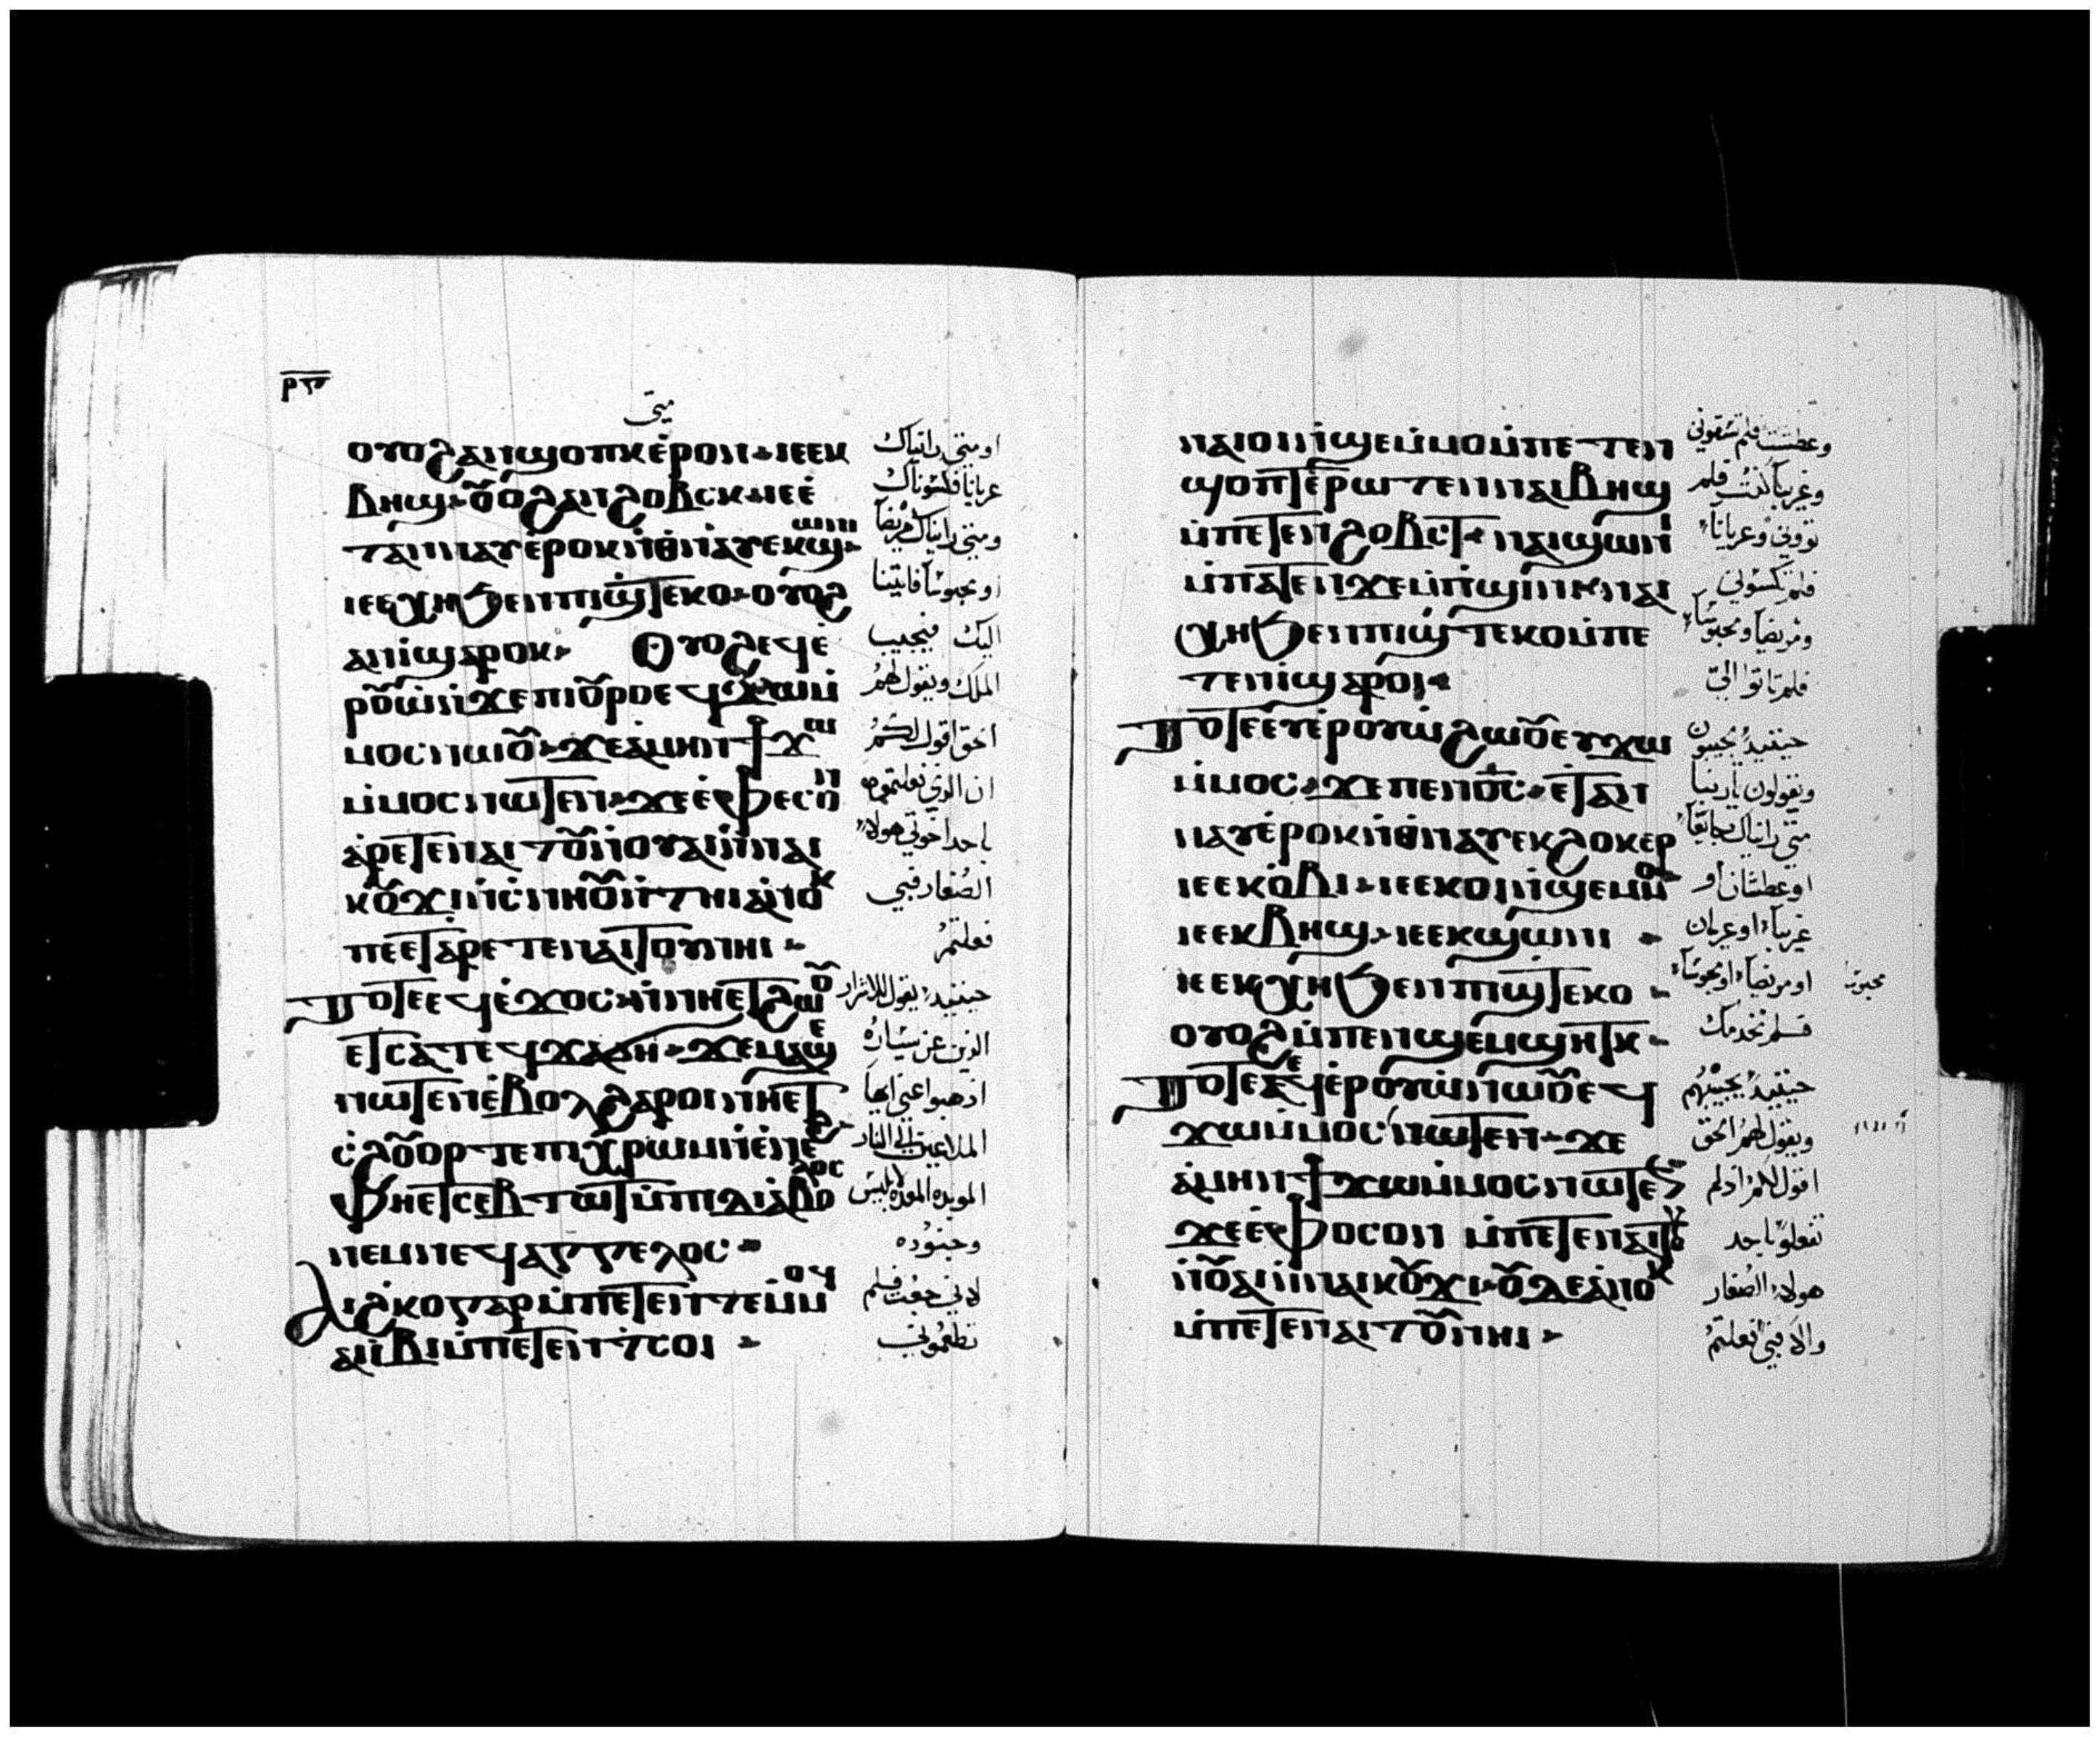 متى
ⲟⲩⲟϩ ⲁⲛϣⲟⲡⲕ ⲉ̀ⲣⲟⲛ ⲓⲉ ⲉⲕ
ⲃⲏϣ ⲟⲩⲟϩ ⲁⲛϩⲟⲃⲥⲕ ⲓⲉ ⲉ̀
ⲧⲁⲛⲛⲁⲩ ⲉ̀ⲣⲟⲕ ⲛ̀ⲑⲛⲁⲩ ⲉⲕϣⲱⲛⲓ
ⲓⲉ ⲉⲕⲭⲏ ϧⲉⲛ ⲡⲓϣ̀ⲧⲉⲕⲟ ⲟⲩⲟϩ
ⲁⲛⲓ̀ ϣⲁⲣⲟⲕ Ⲟⲩⲟϩ ⲉϥⲉ̀
ⲣⲟⲩⲱ̀ ⲛ̀ϫⲉ ⲡⲓⲟⲩⲣⲟ ⲉϥϫⲱ ⲙ̀
ⲙⲟⲥ ⲛⲱⲟⲩ ϫⲉ ⲁ̀ⲙⲏⲛ ϯϫⲱ
ⲙ̀ⲙⲟⲥ ⲛⲱⲧⲉⲛ ϫⲉ ⲉ̀ⲫⲉⲥⲟⲛ
ⲁ̀ⲣⲉⲧⲉⲛⲁⲓⲧⲟⲩ ⲛ̀ⲟⲩⲁⲓ ⲛ̀ⲛⲁⲓ
ⲕⲟⲩϫⲓ ⲛ̀ⲥⲛⲏⲟⲩ ⲛ̀ⲧⲏⲓ ⲁ̀ⲛⲟⲕ
ⲡⲉ ⲉⲧⲁⲣⲉⲧⲉⲛⲁⲓⲧⲟⲩ ⲛⲏⲓ
Ⲧⲟⲧⲉ ⲉϥⲉ̀ϫⲟⲥ ⲛ̀ⲛⲏⲉⲧϩⲱⲟⲩ
ⲉⲧⲥⲁⲧⲉϥϫⲁϭⲏ ϫⲉ ⲙⲁϣⲉ
ⲛⲱⲧⲉⲛ ⲉ̀ⲃⲟⲗ ϩⲁⲣⲟⲓ ⲛⲏⲉⲧ
ⲥ̀ϩⲟⲩⲟⲣⲧ ⲉ̀ⲡⲓⲭⲣⲱⲙ ⲛ̀ⲉ̀ⲛⲉϩ
ⲫⲏⲉⲧⲥⲉⲃⲧⲱⲧ ⲙ̀ⲡⲓⲇⲓⲁⲃⲟⲗⲟⲥ
ⲛⲉⲙ ⲛⲉϥⲁⲅⲅⲉⲗⲟⲥ
Ⲁⲓϩ̀ⲕⲟ ⲅⲁⲣ ⲙ̀ⲡⲉⲧⲉⲛⲧⲉⲙⲙⲟⲓ
ⲁⲓⲓ̀ⲃⲓ ⲙ̀ⲡⲉⲧⲉⲛⲧ̀ⲥⲟⲓ
او متى رايناك
عريانا فكسوناك
ومتى رايناك مريضا
او محبوسا فاتينا
اليك فيجيب
الملك ويقول لهم
الحق اقول لكم
ان الذي فعلتموه
باحد اخوتي هولاء
الصغار فبي
فعلتم
حينيد يقول للاشرار
الذين عن يساره
اذهبوا عني ايها
الملاعين الى النار
الموبده المعده لابليس
وجنوده
لاني جعت فلم
تطعموني
ⲛⲁⲓⲟ̀ⲛⲓ̀ϣⲉⲙⲙⲟ ⲙ̀ⲡⲉⲧⲉⲛ
ϣⲟⲡⲧ ⲉ̀ⲣⲱⲧⲉⲛ ⲛⲁⲓⲃⲏϣ
ⲙ̀ⲡⲉⲧⲉⲛϩⲟⲃⲥⲧ ⲛⲁⲓϣⲱⲛⲓ
ⲙ̀ⲡⲁⲧⲉⲛϫⲉⲙⲡⲓϣⲓⲛⲓ ⲛⲁⲓ
ⲭⲏ ϧⲉⲛ ⲡⲓϣ̀ⲧⲉⲕⲟ ⲙ̀ⲡⲉ
ⲧⲉⲛⲓ̀ ϣⲁⲣⲟⲓ
Ⲧⲟⲧⲉ ⲉⲩⲉ̀ⲣⲟⲩⲱ̀ ϩⲱⲟⲩ ⲉⲩϫⲱ
ⲙ̀ⲙⲟⲥ ϫⲉ ⲡⲉⲛⲟ̅ⲥ̅ ⲉ̀ⲧⲁⲛ
ⲛⲁⲩ ⲉ̀ⲣⲟⲕ ⲛ̀ⲑⲛⲁⲩ ⲉⲕϩⲟⲕⲉⲣ
ⲓⲉ ⲉⲕⲟ̀ⲃⲓ ⲓⲉ ⲉⲕⲟⲓ ⲛ̀ϣⲉⲙⲙⲟ
ⲓⲉ ⲉⲕⲃⲏϣ ⲓⲉ ⲉⲕϣⲱⲛⲓ
ⲓⲉ ⲉⲕⲭⲏ ϧⲉⲛ ⲡⲓϣ̀ⲧⲉⲕⲟ
ⲟⲩⲟϩ ⲙ̀ⲡⲉⲛϣⲉⲙϣⲏⲧⲕ
Ⲧⲟⲧⲉ ⲉϥⲉ̀ⲉⲣⲟⲩⲱ̀ ⲛⲱⲟⲩ ⲉϥ
ϫⲱ ⲙ̀ⲙⲟⲥ ⲛⲱⲧⲉⲛ ϫⲉ
ⲁ̀ⲙⲏⲛ ϯϫⲱ ⲙ̀ⲙⲟⲥ ⲛⲱⲧⲉⲛ
ϫⲉ ⲉ̀ⲫⲟⲥⲟⲛ ⲙ̀ⲡⲉⲧⲉⲛⲁⲓⲧⲟⲩ
ⲛ̀ⲟⲩⲁⲓ ⲛ̀ⲛⲁⲓⲕⲟⲩϫⲓ ⲟⲩⲇⲉ ⲁ̀ⲛⲟⲕ
ⲙ̀ⲡⲉⲧⲉⲛⲁⲓⲧⲟⲩ ⲛⲏⲓ
وعطشت فلم تسقوني
وغريبا كنت فلم
تووني وعريانا
فلم تكسوني
ومريضا ومحبوسا
فلم تاتوا الي
حينيد يجيبون
ويقولون يا ربنا
متى رايناك جايعا
او عطشان او
غريبا او عريان
او مريضا او محبوسا
فلم نخدمك
حينيد يجيبهم
ويقول لهم الحق
اقول لكم اذ لم
تفعلوا باحد
هولاء الصغار
ولا بي فعلتم
محبوسا